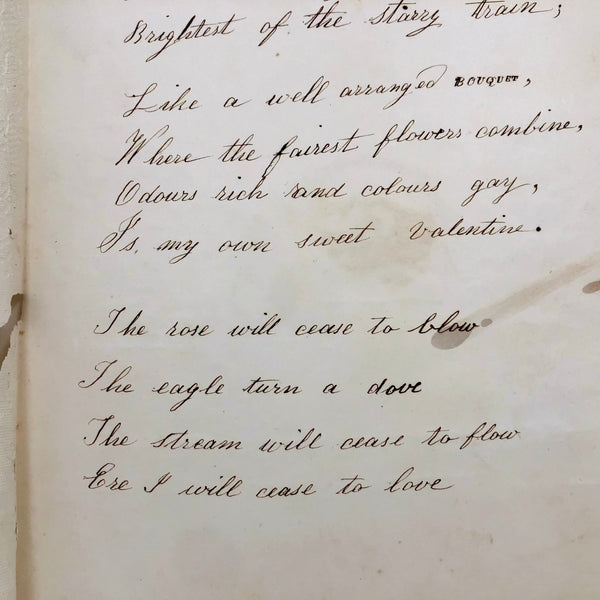 Brightest of the starry train;
Like a well arranged BOUQUET,
Where the fairest flowers combine,
Odours rich and colours gay,
Is, my own sweet Valentine.
The rose will cease to blow
The eagle turn a dove
The stream will cease to flow
Ere I will cease to love